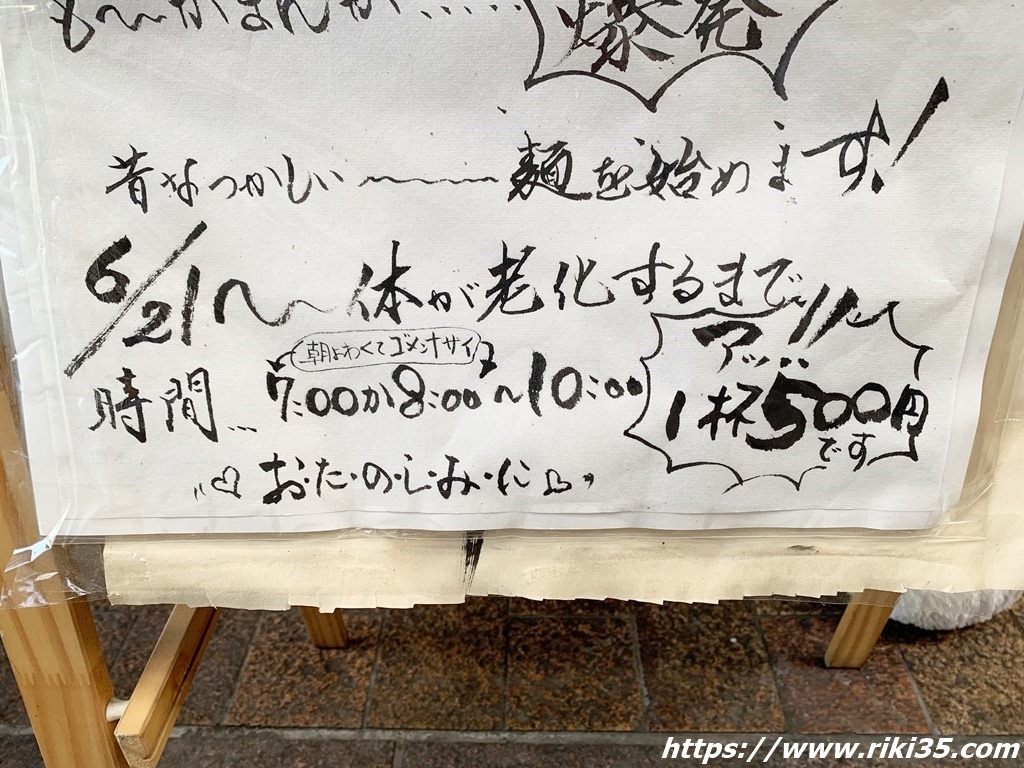 も〜がまんが・・・・・・爆発
昔なつかしい〜〜〜麺を始めます!
6/21〜〜体が老化するまで〜
朝よわくてゴメンナサイ
時間… 7:00か8:00〜10:00
アッ…
1杯500円
です
"♡お・た・の・し・み・に♡"
https://www.riki35.com